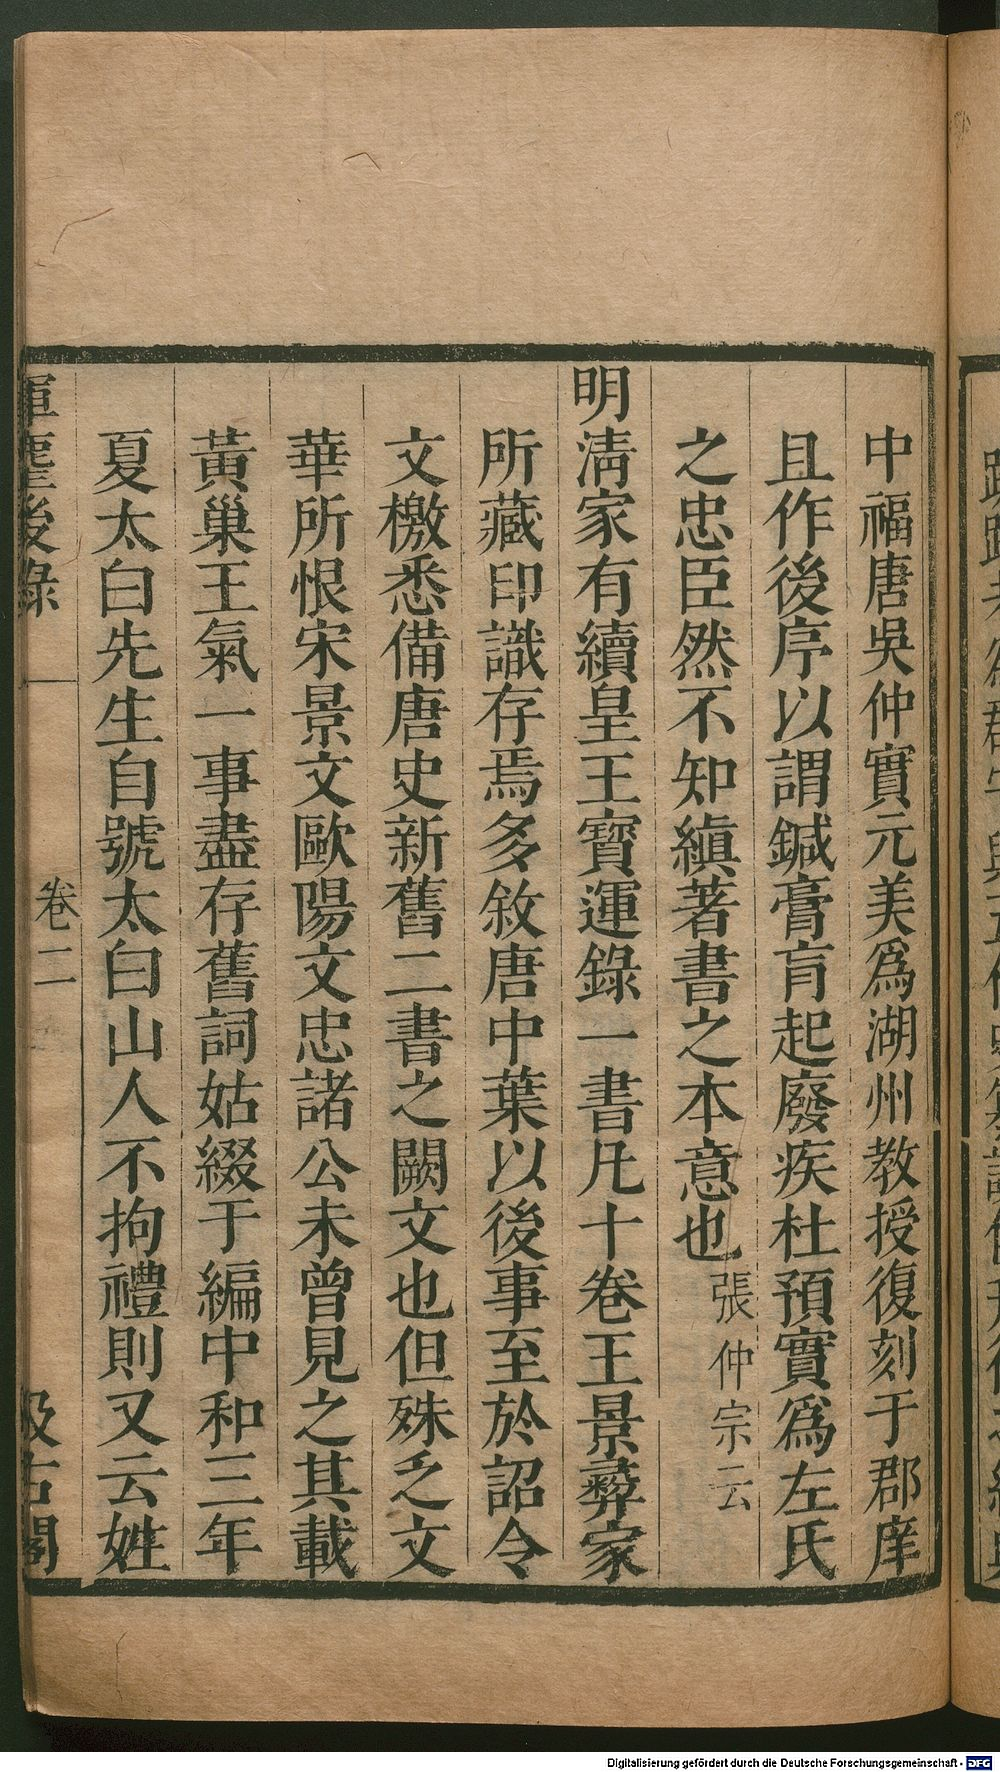 中福唐吳仲實元美爲湖州教授復刻于郡庠
且作後序以謂鍼膏肓起廢疾杜預實爲左氏
之忠臣然不知縝著書之本意也張仲宗云
明淸家有續皇王寶運錄一書凡十卷王景彝家
所藏印識存焉多敘唐中葉以後事至於詔令
文檄悉備唐史新舊二書之闕文也但殊乏文
華所恨宋景文歐陽文忠諸公未曾見之其載
黃巢王氣一事盡存舊詞姑綴于編中和三年
夏太白先生自號太白山人不拘禮則又云姓
揮麈後錄
卷二
汲古閣
Digitalisierung gefördert durch die Deutsche Forschungsgemeinschaft - DFG